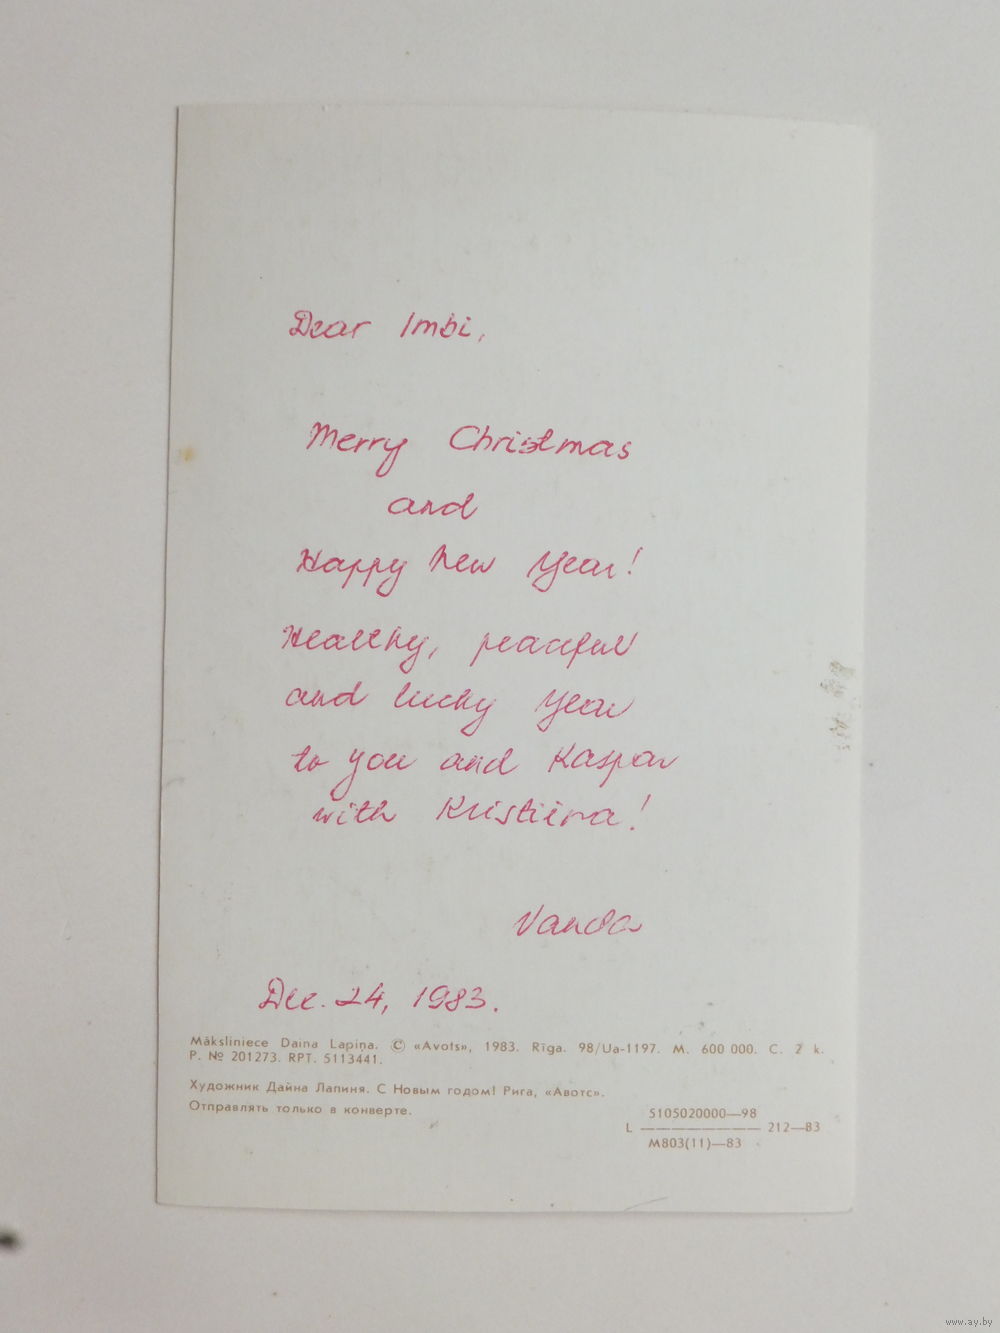 Dear Imbi,
Merry Christmas
and
Happy New Year!
Healthy, peaceful
and lucky Year
to you and Kaspar
with Kristiina!
Vanda
Dec. 24, 1983.
Māksliniece Daina Lapiņa. © «Avots», 1983. Rīga. 98/Ua-1197. M. 600 000. C. 2 k.
P. № 201273. RPT. 5113441.
Художник Дайна Лапиня. С Новым годом! Рига, «Авотс».
Отправлять только в конверте.
5105020000—98
L ————— 212—83
M803(11)—83
www.ay.by